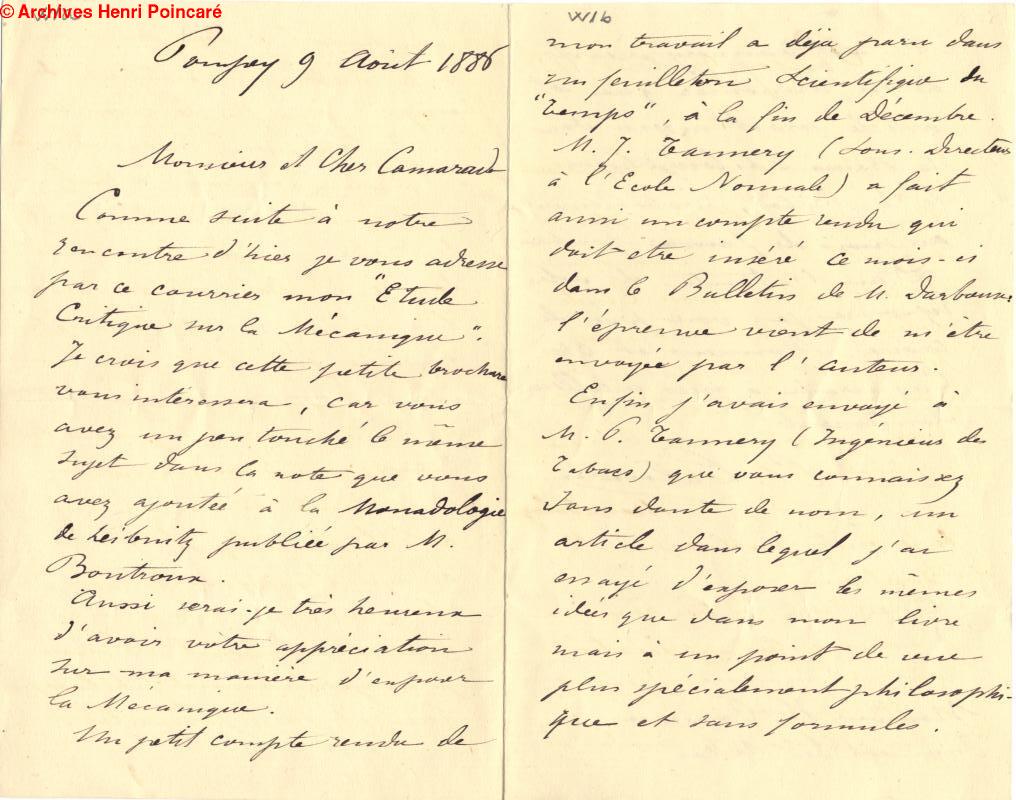 © Archives Henri Poincaré
W16
Pompey 9 Août 1886
Monsieur et Cher Camarade
Comme suite à notre
rencontre d'hier je vous adresse
par ce courrier mon "Etude
Critique sur la Mécanique".
Je crois que cette petite brochure
vous intéressera, car vous
avez un peu touché le même
sujet dans la note que vous
avez ajoutée à la Monadologie
de Leibnitz publiée par M.
Boutroux.
Aussi serai-je très heureux
d'avoir votre appréciation
sur ma manière d'exposer
la Mécanique.
Un petit compte rendu de
mon travail a déja paru dans
un feuilleton Scientifique du
"Temps", à la fin de Décembre.
M. J. Tannery (Sous-Directeur
à l'Ecole Normale) a fait
aussi un compte rendu qui
doit être inséré ce mois-ci
dans le Bulletin de M. Darboux:
l'épreuve vient de m'être
envoyée par l'auteur.
Enfin j'avais envoyé à
M. P. Tannery (Ingénieur des
Tabacs) que vous connaissez
sans doute de nom, un
article dans lequel j'ai
essayé d'exposer les mêmes
idées que dans mon livre
mais à un point de vue
plus spécialement philosophi-
que et sans formules.